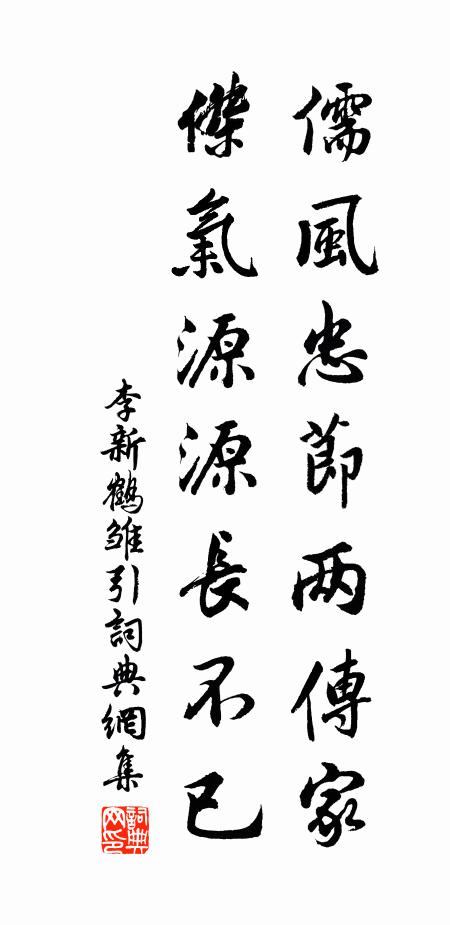 儒風忠節两傳家
傑氣源源長不已
李新鶴雏引詞典網集
詞典網印